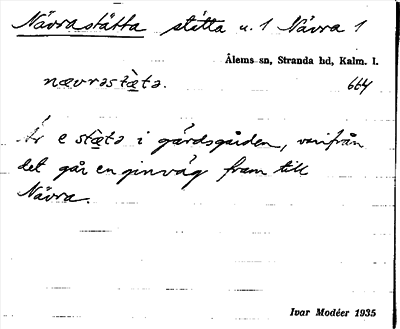 Nävrastätta stätta u. 1 Nävra 1
Ålems sn, Stranda hd, Kalm. l.
nævrəstæ̀tə. 664
Är e stæ̀tə i gärdsgården, varifrån
det går en ginväg fram till
Nävra.
Ivar Modéer 1935